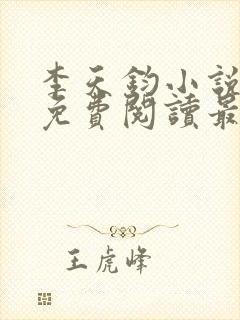 李天鈞小說
免費閱讀最
王虎峰